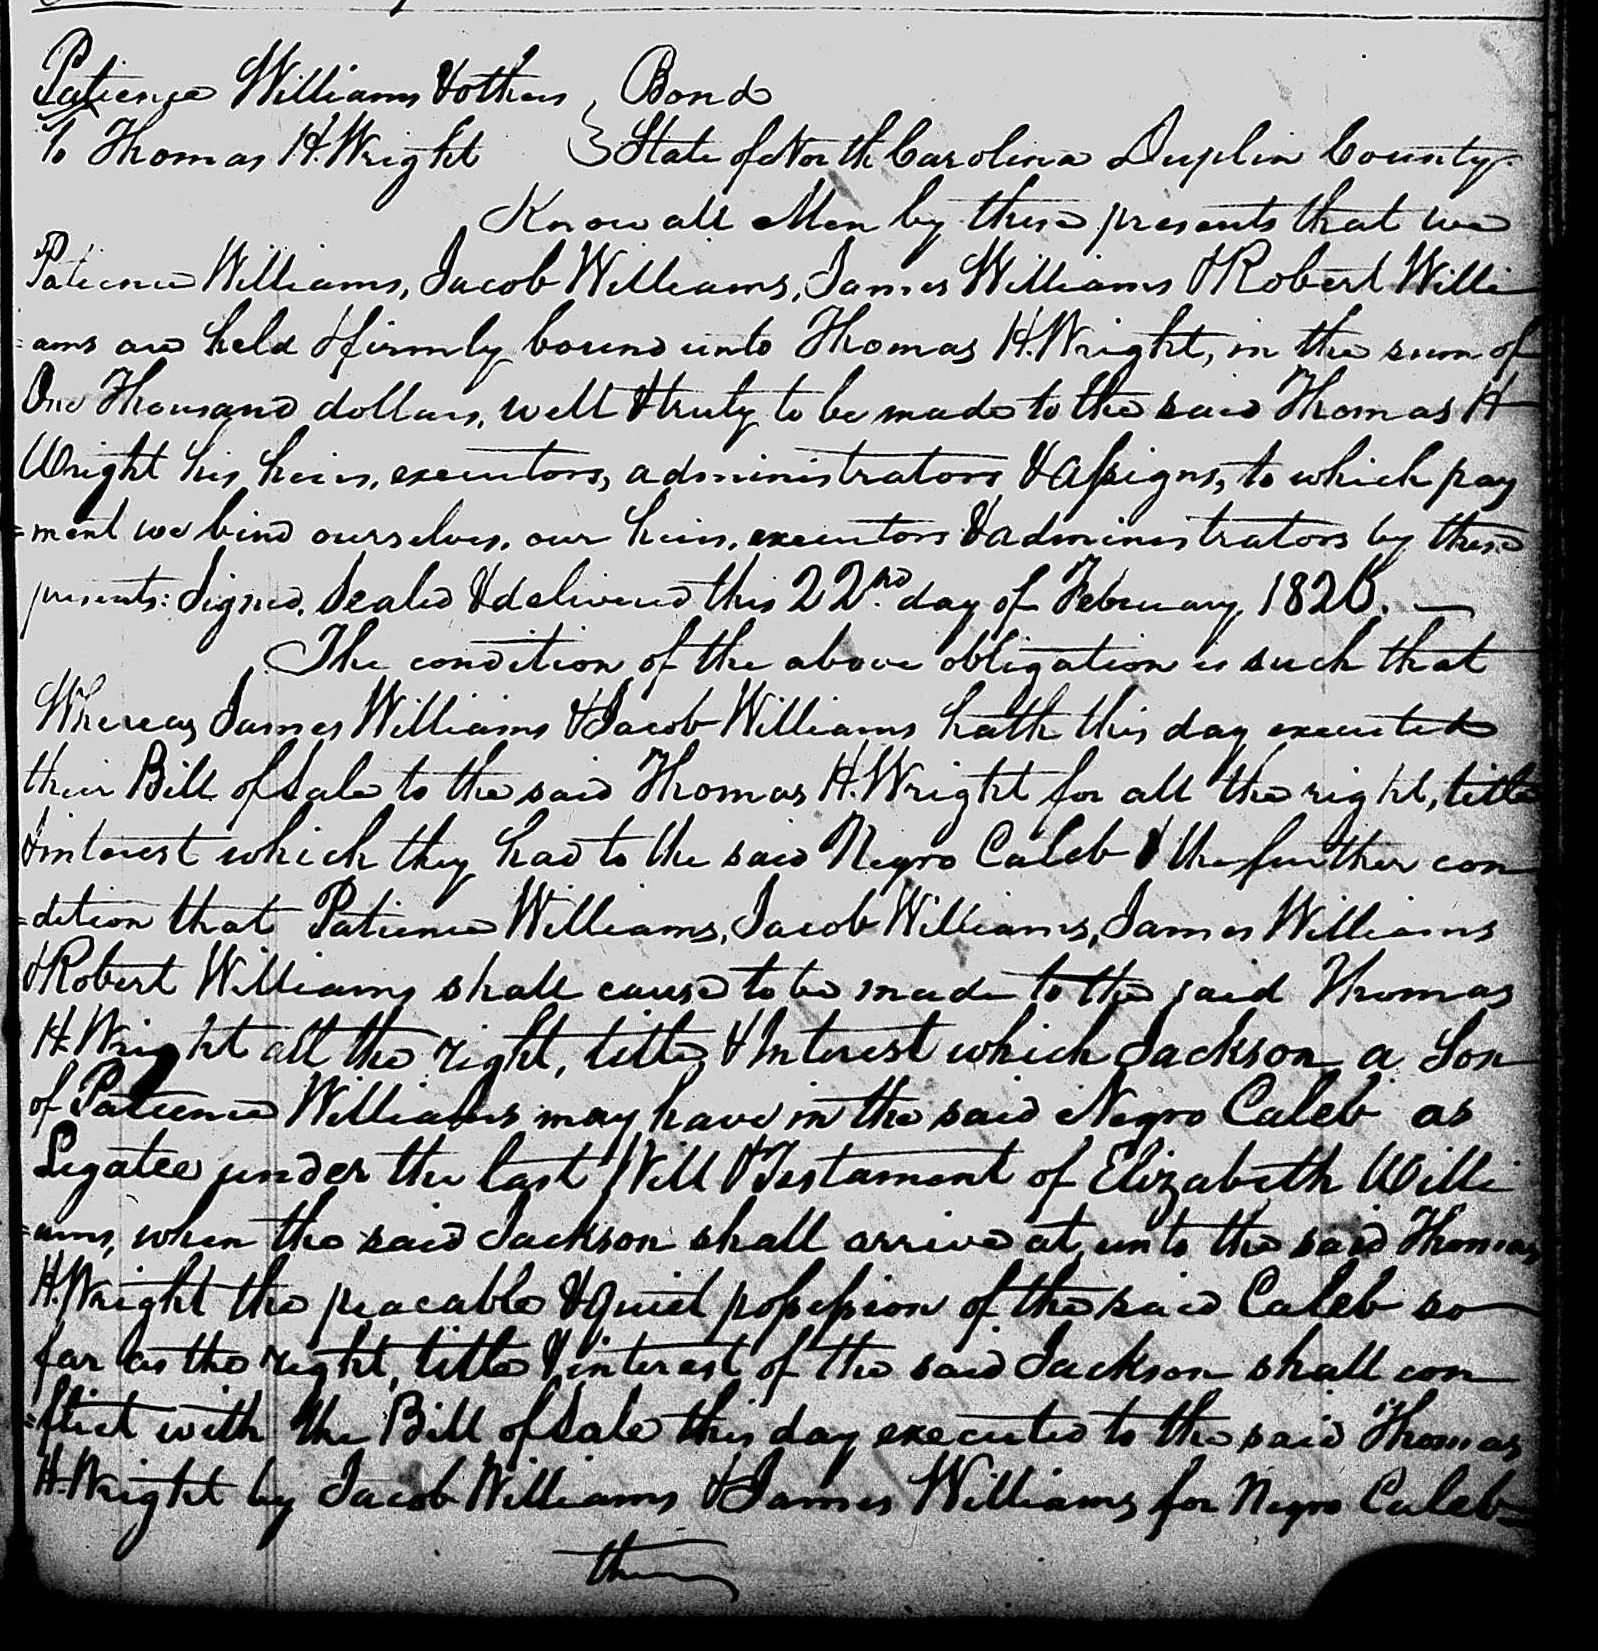 Patience Williams & others } Bond
To Thomas H. Wright } State of North Carolina Duplin County
Know all Men by these presents that we
Patience Williams, Jacob Williams, James Williams & Robert Willi
=ams are held & firmly bound unto Thomas H. Wright, in the sum of
One Thousand dollars, well & truly to be made to the said Thomas H
Wright his heirs, executors, administrators & assigns, to which pay
=ment we bind ourselves, our heirs, executors & administrators by these
presents: Signed, Sealed & delivered this 22nd day of February,
The condition of the above obligation is such that
Whereas James Williams & Jacob Williams hath this day executed
their Bill of Sale to the said Thomas H. Wright for all the right, title
& interest which they had to the said Negro Caleb & the further con
=dition that Patience Williams, Jacob Williams, James Williams
& Robert Williams shall cause to be made to the said Thomas
H. Wright all the right, title & Interest which Jackson a Son
of Patience Williams may have in the said Negro Caleb as
Legatee under the last Will & Testament of Elizabeth Willi
=ams, when the said Jackson shall arrive at, unto the said Thomas
H. Wright the peacable & quiet possession of the said Caleb so
far as the right, title & interest of the said Jackson shall con
=flict with the Bill of Sale this day executed to the said Thomas
H. Wright by Jacob Williams & James Williams for Negro Caleb=
then